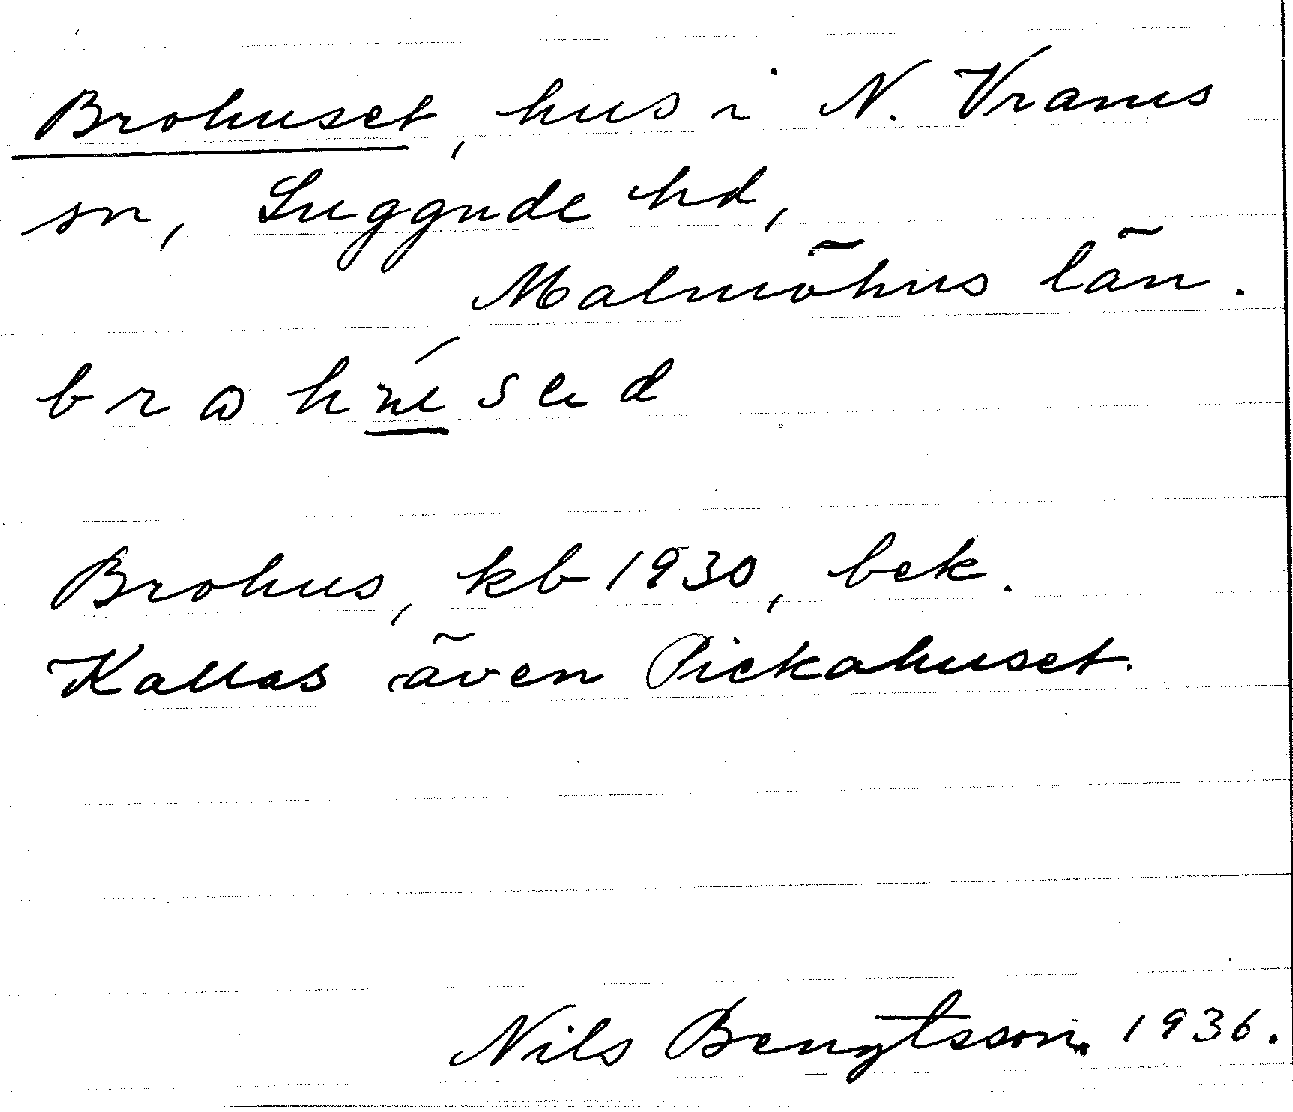 Brohuset, hus i N. Vrams
sn, Luggude hd,
Malmöhus län.
Brohus, kb 1930, bek.
Kallas även Pickahuset.
Nils Bengtsson. 1936.